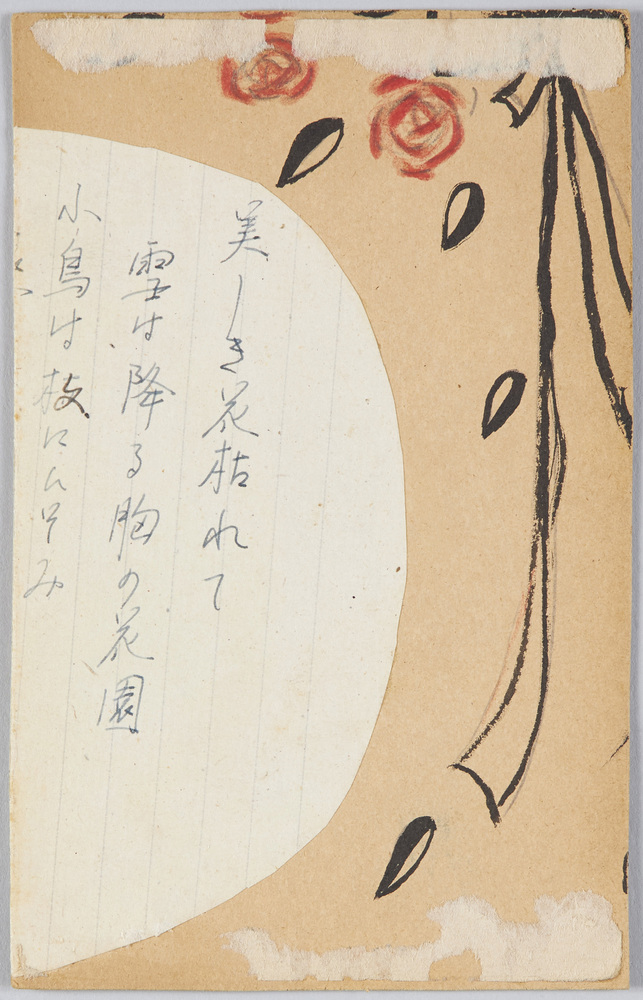 美しき花枯れて
雪は降る胸の花園
小鳥は枝にひそみ